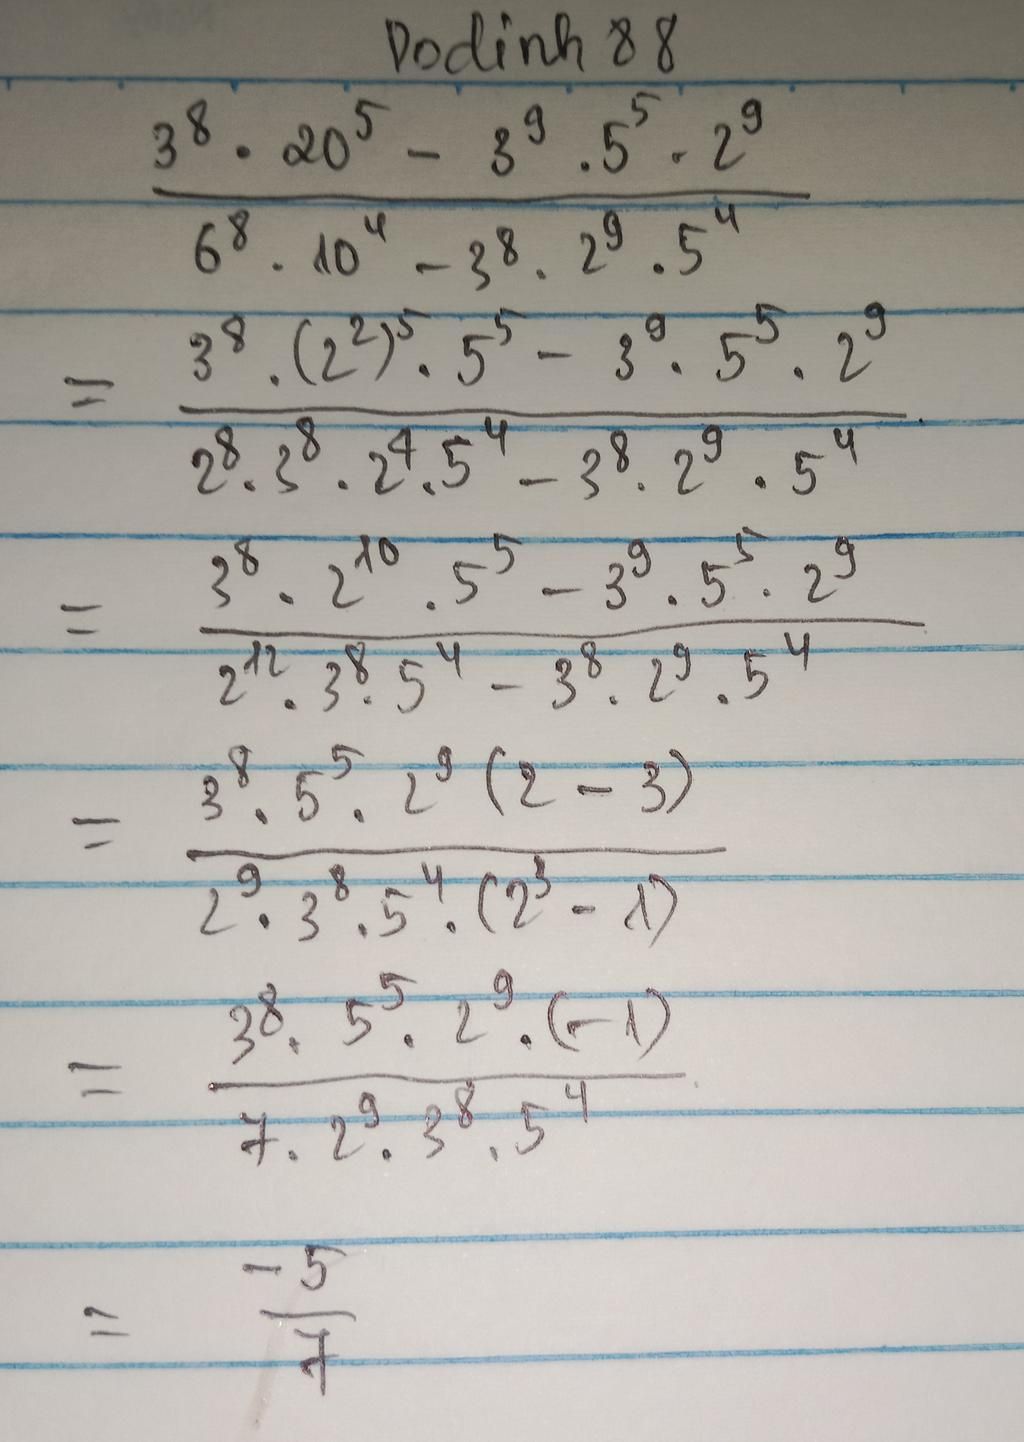 Dodinh 88
3⁸ . 20⁵ - 3⁹ . 5⁵ . 2⁹
6⁸ . 10⁴ - 3⁸ . 2⁹ . 5⁴
= 3⁸ . (2²)⁵ . 5⁵ - 3⁹ . 5⁵ . 2⁹
2⁸ . 3⁸ . 2⁴ . 5⁴ - 3⁸ . 2⁹ . 5⁴
= 3⁸ . 2¹⁰ . 5⁵ - 3⁹ . 5⁵ . 2⁹
2¹² . 3⁸ . 5⁴ - 3⁸ . 2⁹ . 5⁴
= 3⁸ . 5⁵ . 2⁹ (2 - 3)
2⁹ . 3⁸ . 5⁴ . (2³ - 1)
= 3⁸ . 5⁵ . 2⁹ . (-1)
7 . 2⁹ . 3⁸ . 5⁴
= -5
7